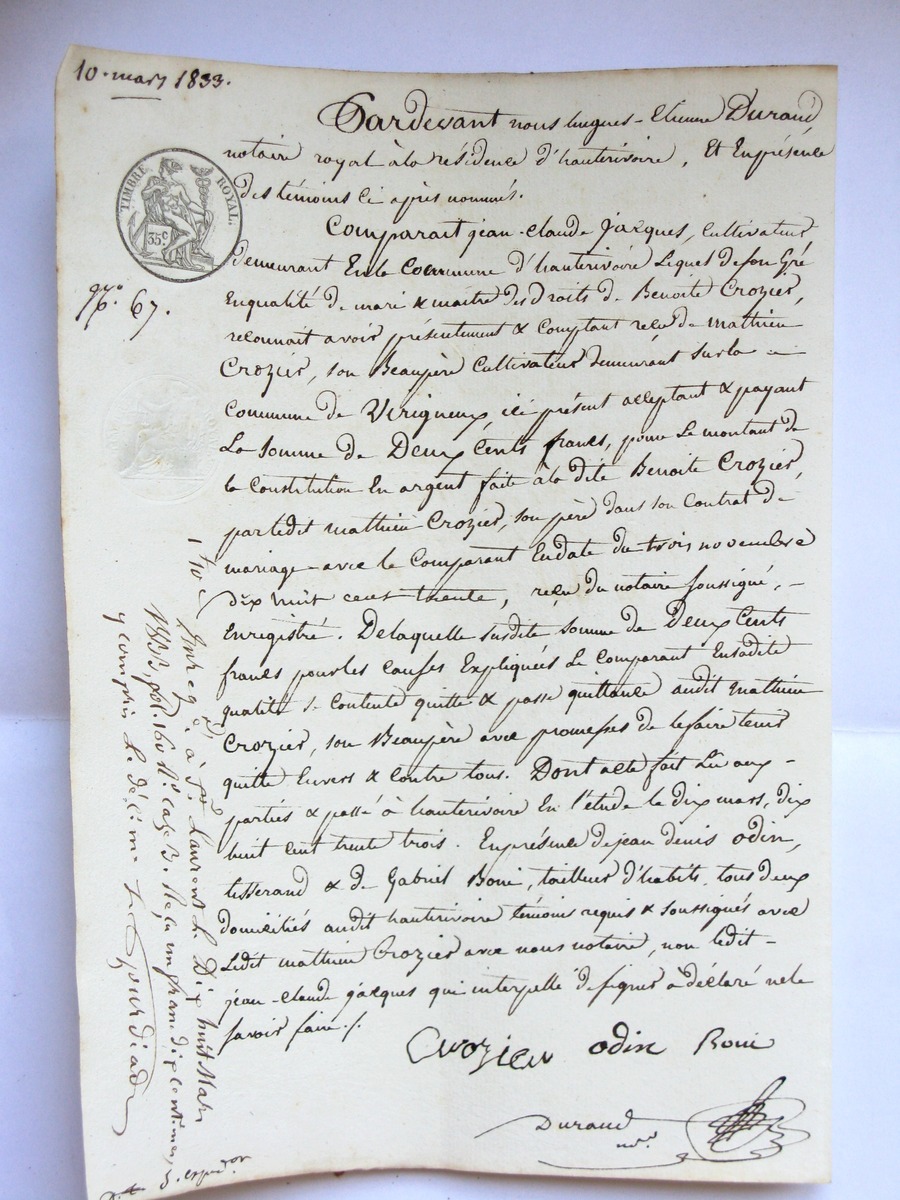 10. mars 1833.
Pardevant nous Hugues-Etienne Durand
notaire royal à la résidence d'hauterivoire, Et En présence
des témoins ci après nommés.
TIMBRE ROYAL.
35c
Comparait jean-claude jacques, cultivateur
demeurant En la Commune d'hauterivoire Lequel de son Gré
En qualité de mari & maitre des droits de Benoite Crozier,
N.o 67.
reconnait avoir présentement & Comptant reçu de mathieu
Crozier, son Beaupère Cultivateur demeurant sur la -
Commune de Virigneux, ici présent acceptant & payant
La somme de Deux Cents francs, pour Le montant de
la Constitution En argent faite à la dite Benoite Crozier,
par ledit mathieu Crozier, son père dans son Contrat de
mariage avec le Comparant En date du trois novembre
dix huit cent trente, reçu du notaire soussigné, -
Enregistré. De laquelle susdite somme de Deux Cents
francs pour les causes Expliquées Le comparant En sa dite
qualité se contente quitte & passe quittance audit mathieu
Crozier, son Beaupère avec promesses de le faire tenir
quitte Envers & contre tous. Dont acte fait Lu aux -
parties & passé à hauterivoire En l'étude le dix mars, dix
huit cent trente trois. En présence de jean denis odin,
tisserand & de Gabriel Boni, tailleur d'habits, tous deux
domiciliés audit hauterivoire témoins requis & soussignés avec
Ledit mathieu Crozier avec nous notaire, non ledit -
jean-claude jacques qui interpellé de signer a déclaré ne le
savoir faire./.
Crozier odin Boni
Durand
nre
Enreg.é à St. Laurent L. Dix huit Mars
1833, fol. 160 r. case 3. Reçu un franc dix centimes,
y compris L. décime